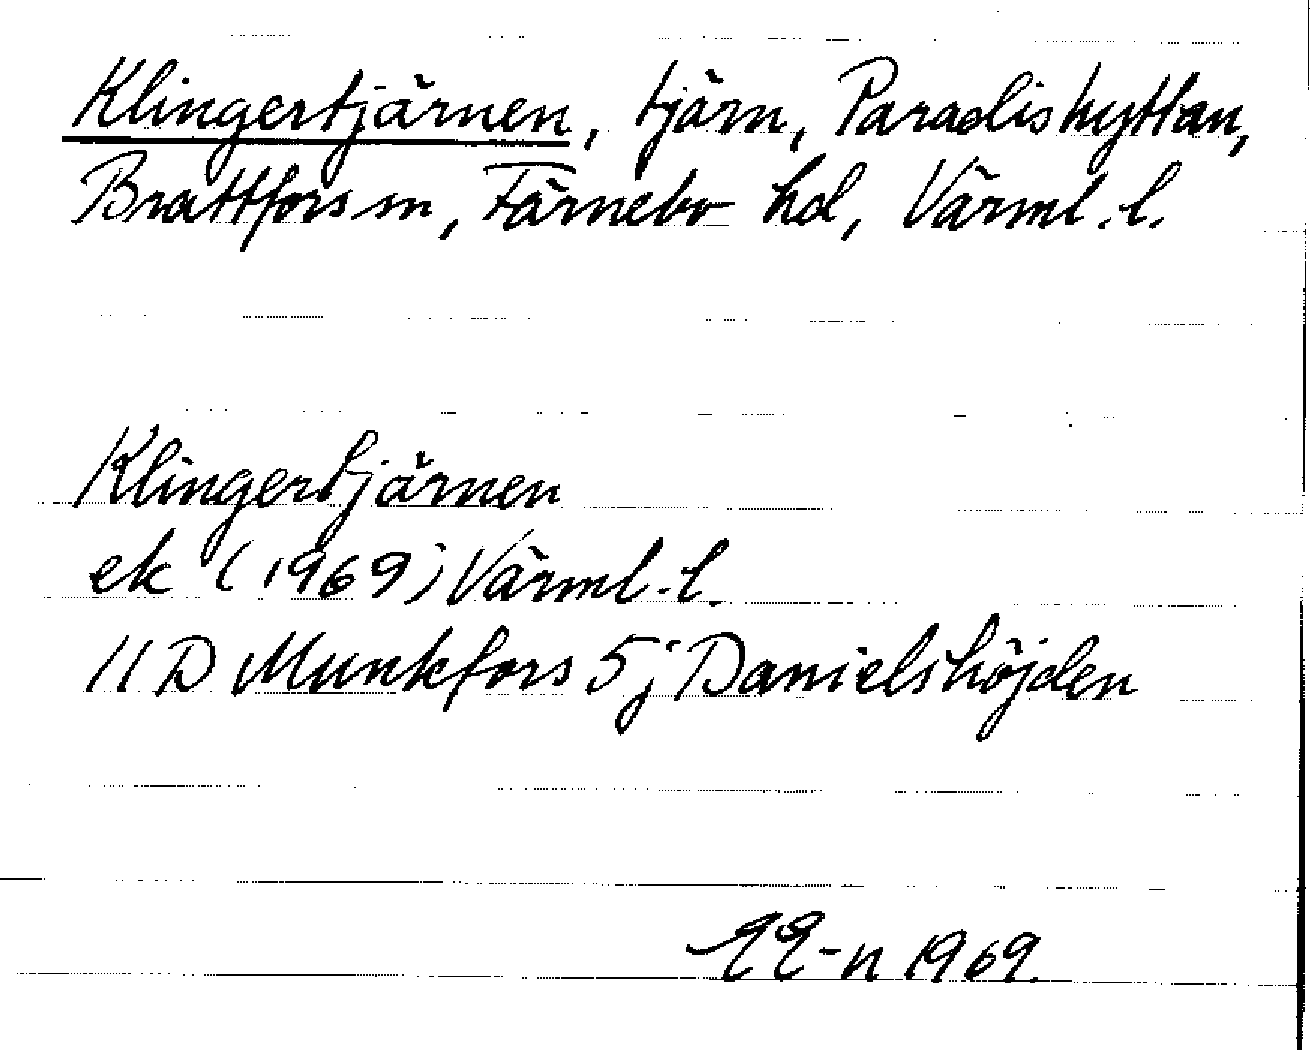 Klingertjärnen, tjärn, Paradishyttan,
Brattfors sn, Färnebo hd, Värml. l.
Klingertjärnen
ek (1969) Värml. l.
11D Munkfors 5j Danielshöjden
1969.